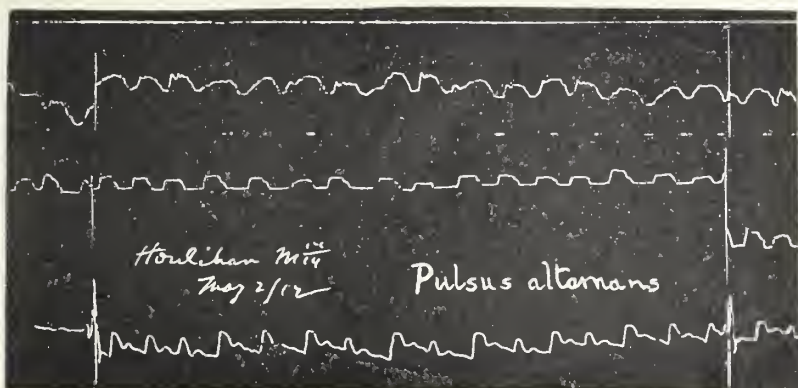 Houlihan
May 2/12
Pulsus alternans